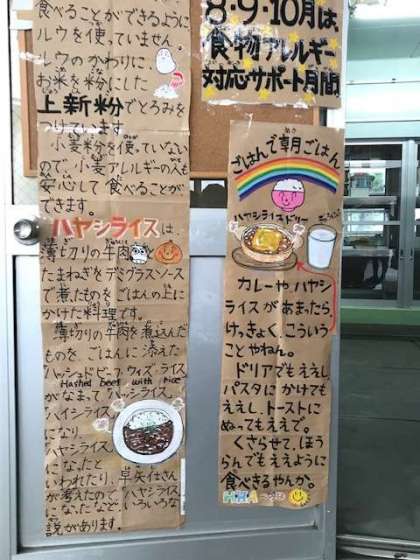 食べることができるように
ルウを使っていません。
ルウのかわりに、
お米を粉にした
上新粉でとろみを
つけています。
小麦粉を使っていない
ので、小麦アレルギーの人も
安心して食べることが
できます。
ハヤシライスは、
薄切りの牛肉と
たまねぎをデミグラスソース
で煮たものをごはんの上に
かけた料理です。
薄切りの牛肉を煮込んだ
ものを、ごはんに添えた
ハッシュドビーフ・ウィズ・ライス
Hashed beef with rice
がなまって、ハッシュライス、
ハイシライス
になり、
ハヤシライス
になったと
いわれたり、早矢仕さん
が考えたので、ハヤシライス
になったなど、いろいろな
説があります。
8・9・10月は
食物アレルギー
対応サポート月間
ごはんで朝ごはん
あさ
ハヤシライスドリア
カレーや ハヤシ
ライスが あまったら、
けっきょく、こういう
ことやねん。
ドリアでもええし
パスタにかけても
ええし、トーストに
ぬってもええで。
くさらせて、ほう
らんでもええように
食べきるやんか。